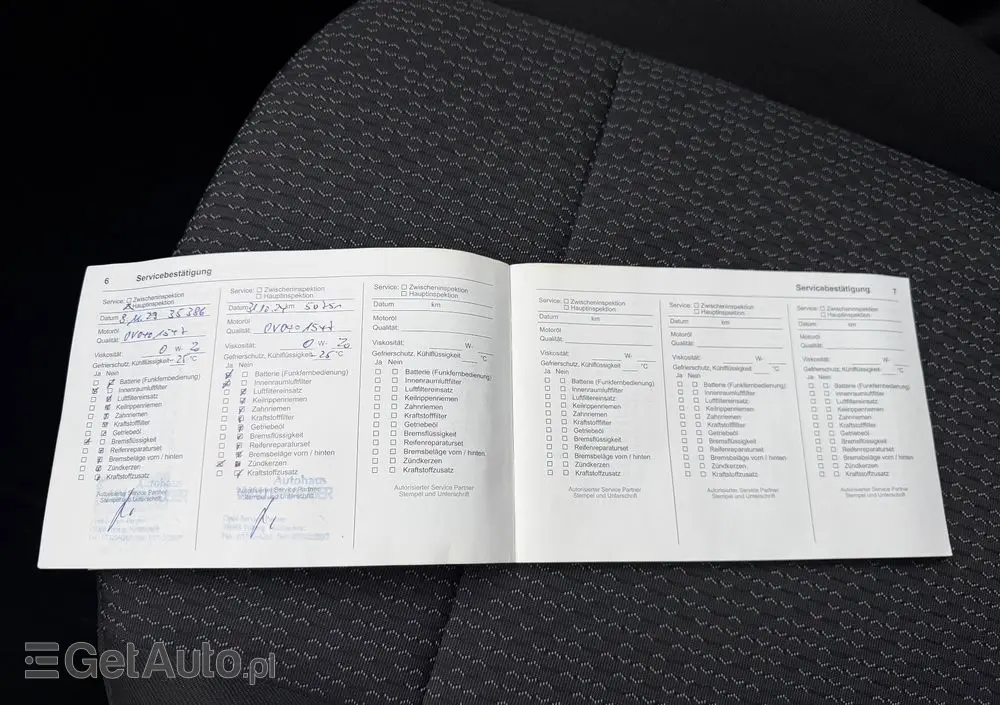 6 Servicebestätigung
Service: Zwischeninspektion
Hauptinspektion
Datum 35386
Motoröl
Qualität: OV040 1547
Viskosität: 0 W- 20
Gefrierschutz, Kühlflüssigkeit - 25 °C
Ja Nein
Batterie (Funkfernbedienung)
Innenraumluftfilter
Luftfiltereinsatz
Keilrippenriemen
Zahnriemen
Kraftstofffilter
Getriebeöl
Bremsflüssigkeit
Reifenreparaturset
Bremsbeläge vorn / hinten
Zündkerzen
Kraftstoffzusatz
Autorisierter Service Partner
Stempel und Unterschrift
Service: Zwischeninspektion
Hauptinspektion
Datum km
Motoröl
Qualität: OV040 1547
Viskosität: 0 W- 20
Gefrierschutz, Kühlflüssigkeit - 25 °C
Ja Nein
Batterie (Funkfernbedienung)
Innenraumluftfilter
Luftfiltereinsatz
Keilrippenriemen
Zahnriemen
Kraftstofffilter
Getriebeöl
Bremsflüssigkeit
Reifenreparaturset
Bremsbeläge vorn / hinten
Zündkerzen
Kraftstoffzusatz
Autohaus
Autorisierter Service Partner
Stempel und Unterschrift
Service: Zwischeninspektion
Hauptinspektion
Datum km
Motoröl
Qualität:
Viskosität: W-
Gefrierschutz, Kühlflüssigkeit °C
Ja Nein
Batterie (Funkfernbedienung)
Innenraumluftfilter
Luftfiltereinsatz
Keilrippenriemen
Zahnriemen
Kraftstofffilter
Getriebeöl
Bremsflüssigkeit
Reifenreparaturset
Bremsbeläge vorn / hinten
Zündkerzen
Kraftstoffzusatz
Autorisierter Service Partner
Stempel und Unterschrift
Servicebestätigung 7
Service: Zwischeninspektion
Hauptinspektion
Datum km
Motoröl
Qualität:
Viskosität: W-
Gefrierschutz, Kühlflüssigkeit °C
Ja Nein
Batterie (Funkfernbedienung)
Innenraumluftfilter
Luftfiltereinsatz
Keilrippenriemen
Zahnriemen
Kraftstofffilter
Getriebeöl
Bremsflüssigkeit
Reifenreparaturset
Bremsbeläge vorn / hinten
Zündkerzen
Kraftstoffzusatz
Autorisierter Service Partner
Stempel und Unterschrift
Service: Zwischeninspektion
Hauptinspektion
Datum km
Motoröl
Qualität:
Viskosität: W-
Gefrierschutz, Kühlflüssigkeit °C
Ja Nein
Batterie (Funkfernbedienung)
Innenraumluftfilter
Luftfiltereinsatz
Keilrippenriemen
Zahnriemen
Kraftstofffilter
Getriebeöl
Bremsflüssigkeit
Reifenreparaturset
Bremsbeläge vorn / hinten
Zündkerzen
Kraftstoffzusatz
Autorisierter Service Partner
Stempel und Unterschrift
Service: Zwischeninspektion
Hauptinspektion
Datum km
Motoröl
Qualität:
Viskosität: W-
Gefrierschutz, Kühlflüssigkeit °C
Ja Nein
Batterie (Funkfernbedienung)
Innenraumluftfilter
Luftfiltereinsatz
Keilrippenriemen
Zahnriemen
Kraftstofffilter
Getriebeöl
Bremsflüssigkeit
Reifenreparaturset
Bremsbeläge vorn / hinten
Zündkerzen
Kraftstoffzusatz
Autorisierter Service Partner
Stempel und Unterschrift
GetAuto.pl